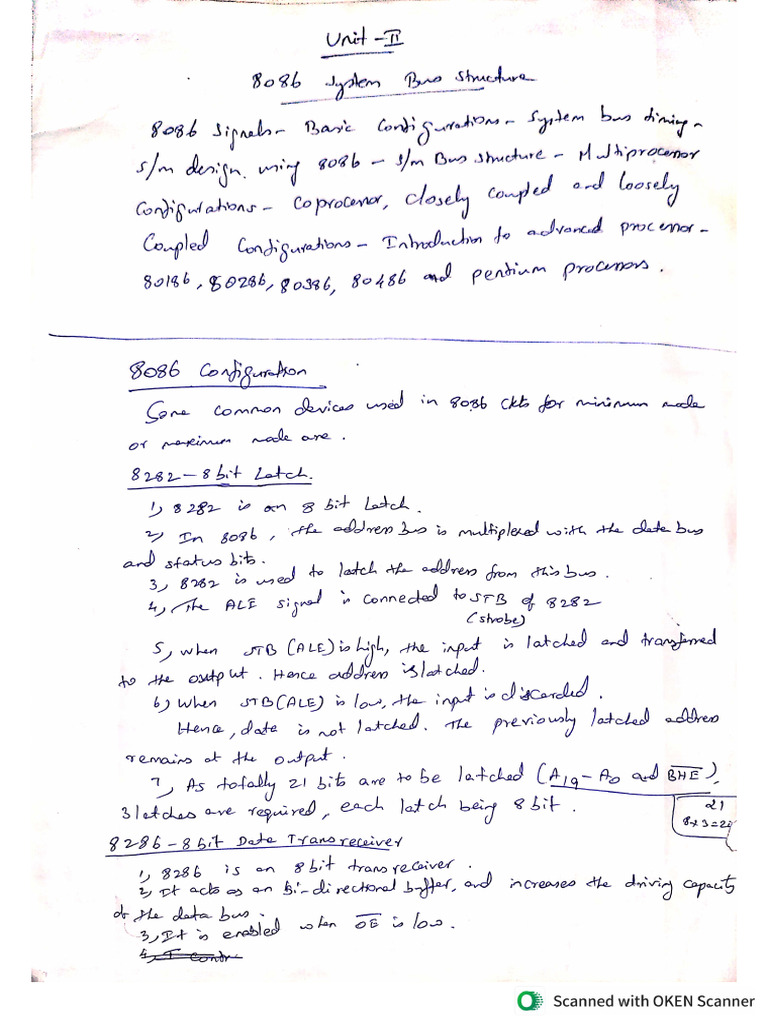 Unit - II
8086 System Bus Structure
8086 Signals - Basic Configurations - System bus timing -
s/m design using 8086 - s/m Bus structure - Multiprocessor
Configurations - Coprocessor, Closely coupled and loosely
Coupled Configurations - Introduction to advanced processor -
80186, 80286, 80386, 80486 and pentium processors.
8086 Configuration
Some common devices used in 8086 ckts for minimum mode
or maximum mode are.
8282 - 8 bit Latch.
1) 8282 is an 8 bit Latch.
2) In 8086, the address bus is multiplexed with the data bus
and status bits.
3) 8282 is used to latch the address from this bus.
4) The ALE signal is connected to STB of 8282
(strobe)
5) When STB (ALE) is high, the input is latched and transferred
to the output. Hence address is latched.
6) When STB (ALE) is low, the input is discarded.
Hence, data is not latched. The previously latched address
remains at the output.
7) As totally 21 bits are to be latched (A19 - A0 and B̅H̅E̅),
3 latches are required, each latch being 8 bit.
21
8x3=2
8286 - 8 bit Data Transreceiver
1) 8286 is an 8 bit transreceiver.
2) It acts as an bi-directional buffer, and increases the driving capacity
of the data bus.
3) It is enabled when O̅E̅ is low.
4) T Contr
Scanned with OKEN Scanner